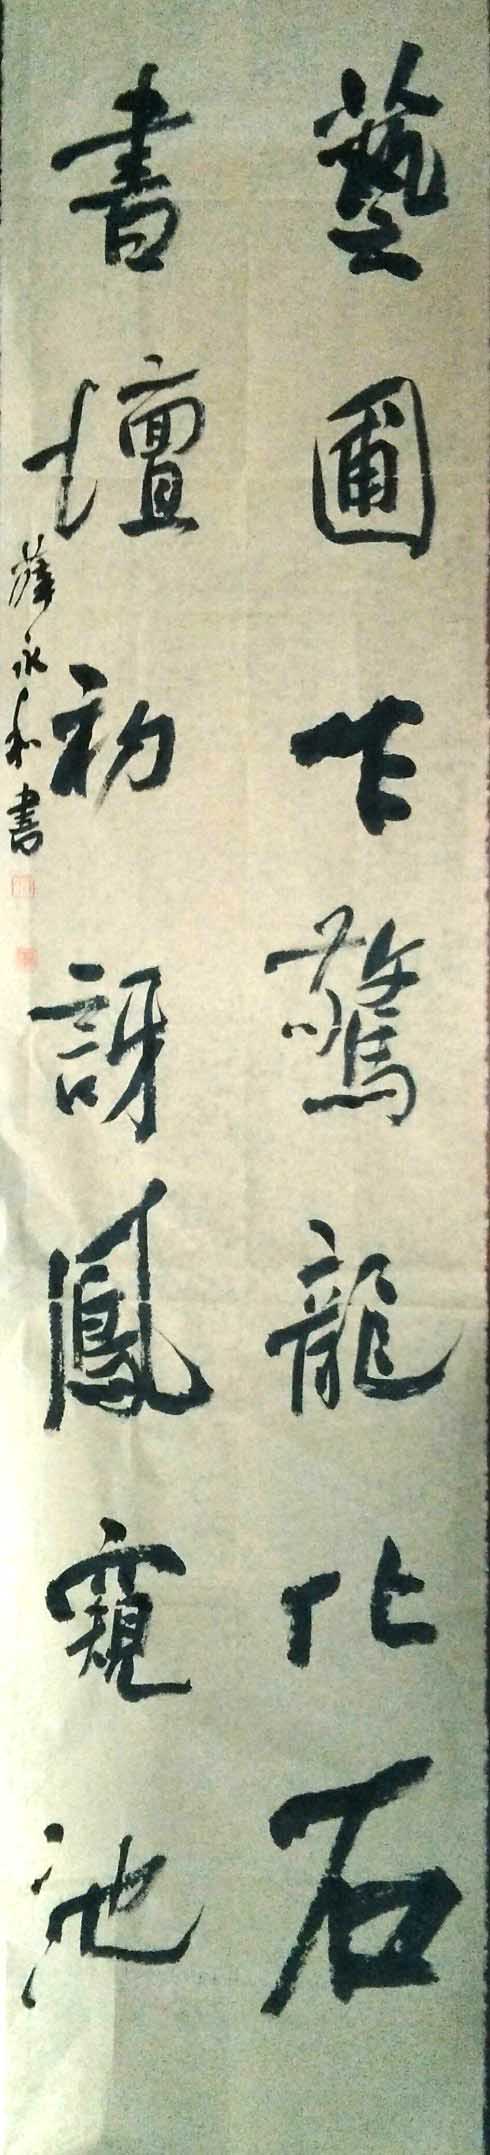 藝圃乍驚龍化石
書壇初訝鳳窺池
薛永和書